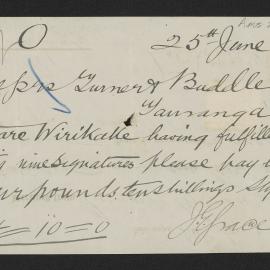 O
25th June
Turner & Buddle
Tauranga
are Wirikake having fulfille
nine signatures please pay
pounds, ten shillings
= 10 = 0
J E Grace